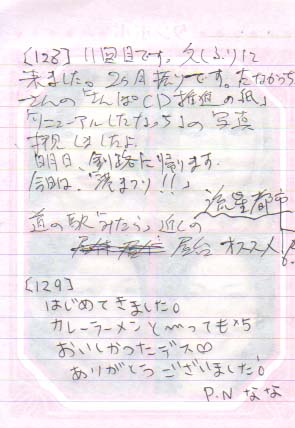 [128] 11回目です。久しぶりに
来ました。2ヶ月振りです。たなかっち
さんの「さんぽCD推進の紙」
「リニューアルしたたなっち」の写真
拝見しましたよ。
明日、釧路に帰ります。
今日は、「港まつり!!」
流星都市
道の駅「みたら」近くの
屋台 オススメ
[129]
はじめてきました。
カレーラーメンとっても
おいしかったデス♡
ありがとうございました!
P.N なな